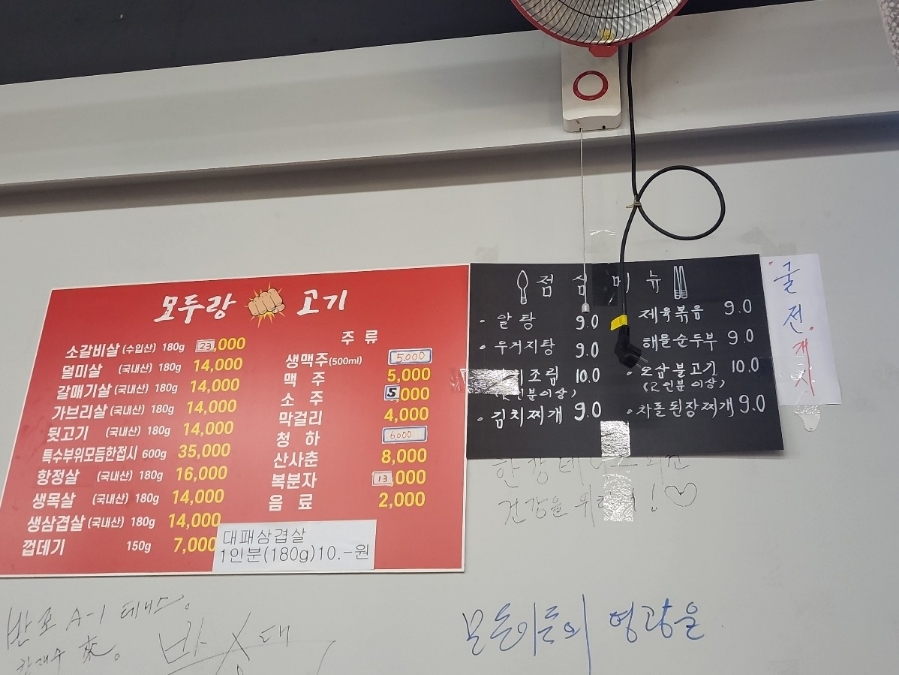 모두랑 고기
소갈비살 (수입산) 180g 23,000
덜미살 (국내산) 180g 14,000
갈매기살 (국내산) 180g 14,000
가브리살 (국내산) 180g 14,000
뒷고기 (국내산) 180g 14,000
특수부위모듬한접시 600g 35,000
항정살 (국내산) 180g 16,000
생목살 (국내산) 180g 14,000
생삼겹살 (국내산) 180g 14,000
껍데기 150g 7,000
주 류
생맥주(500ml) 5,000
맥 주 5,000
소 주 5,000
막걸리 4,000
청 하 6,000
산사춘 8,000
복분자 13,000
음 료 2,000
대패삼겹살
1인분(180g)10.-원
점 심 메 뉴
알탕 9.0
우거지탕 9.0
조림 10.0
(2인분이상)
김치찌개 9.0
제육볶음 9.0
해물순두부 9.0
오삼불고기 10.0
(2인분이상)
차돌된장찌개 9.0
굴전
건강을 위하 !♡
반포 A-1 테니스.
모든이들의 영광을